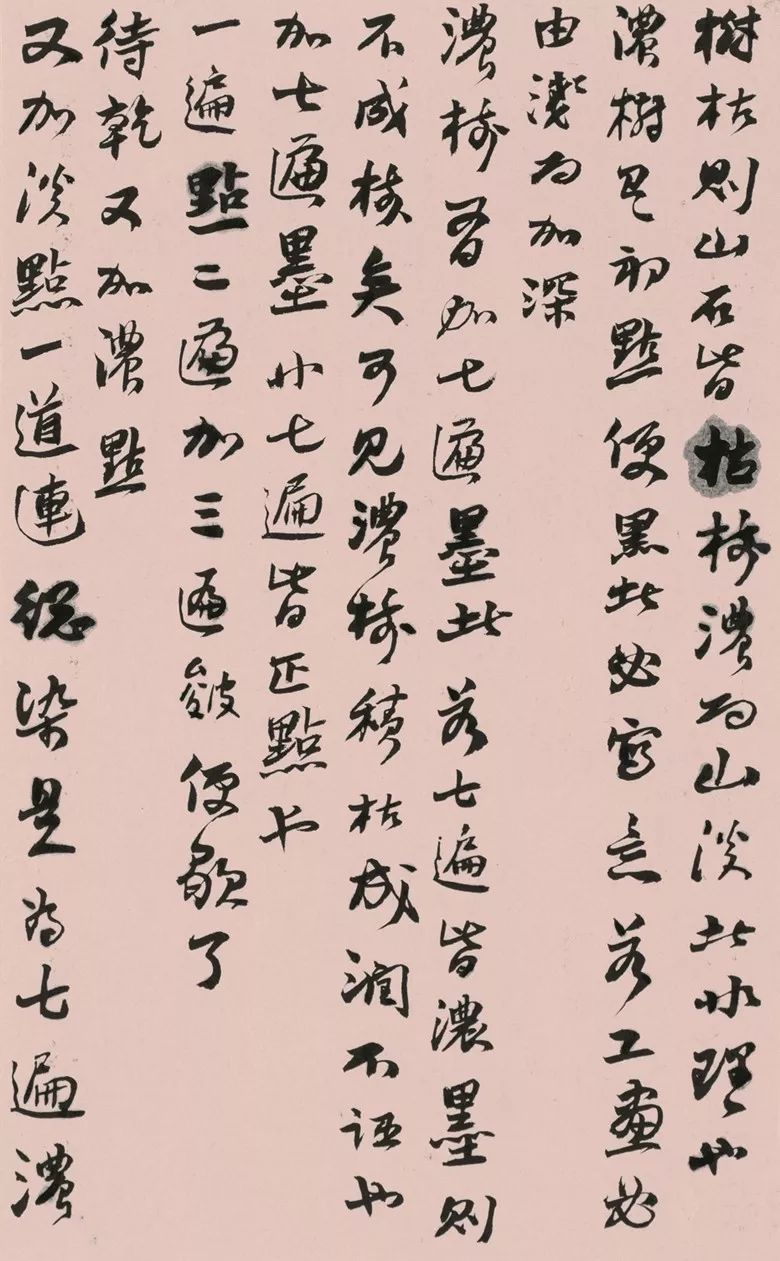 樹枯則山石皆枯樹濃而山淡此非理也
濃樹見初點便黑此必寫意若工畫必
由淺而加深
濃樹有加七遍墨此若七遍皆濃墨則
不成樹矣可見濃樹積枯成潤不誣也
加七遍墨非七遍皆正點也
一遍點二遍加三遍皴便歇了
待乾又加濃點
又加淡點一道連總染是為七遍濃